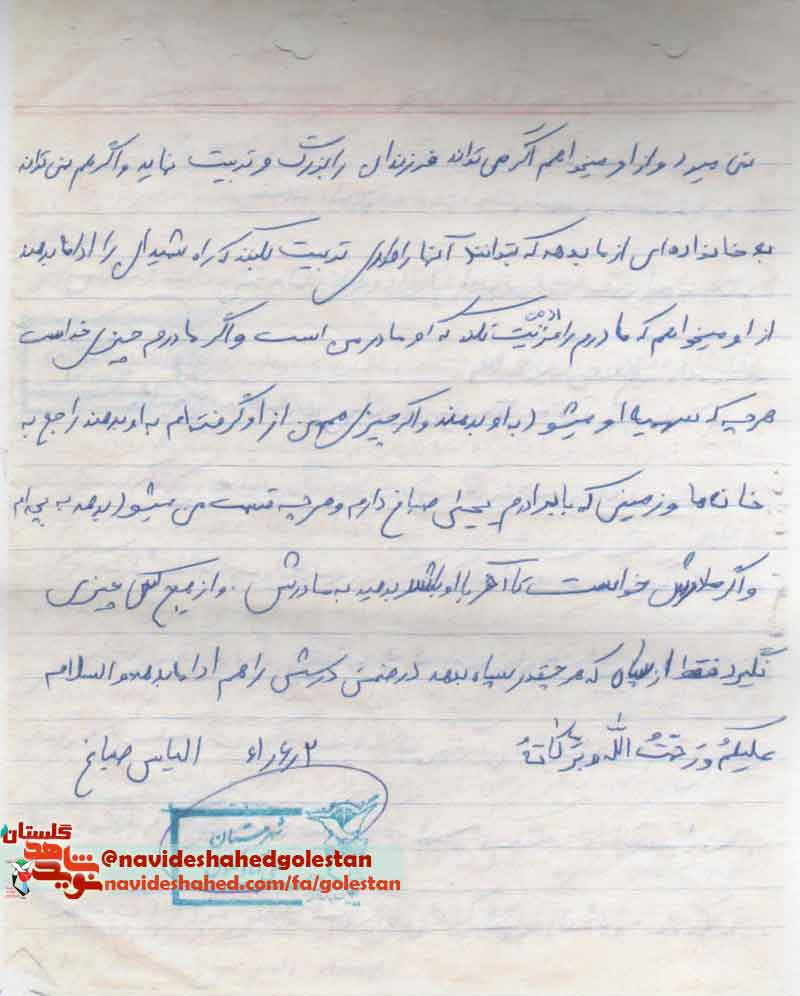 نمی میرد و از او میخواهم اگر می تواند فرزندان را بزرگ و تربیت نماید و اگر هم نمی تواند
به خانواده ای از ما بدهد که بتوانند آنها را طوری تربیت بکنند که راه شهیدان را ادامه بدهند
از او میخواهم که مادرم را اذیت نکند که او مادر من است و اگر مادرم چیزی خواست
هرچه که سهمیه او میشود به او بدهند و اگر چیزی هم من از او گرفته ام به او بدهند راجع به
خانه ما و زمینی که با برادرم یحیی صباغ دارم و هرچه قسمت من میشود بدهد به بچه ام
و اگر مادرش خواست تا آخر با او باشد بدهید به مادرش . و از هیچ کس چیزی
نگیرد فقط از سپاه که هر چقدر سپاه بدهد در ضمن درسش را هم ادامه بدهد والسلام
علیکم و رحمت الله و برکاته
الیاس صباغ
شهرستان
گلستان
نوید شاهد
@navideshahedgolestan
navideshahed.com/fa/golestan